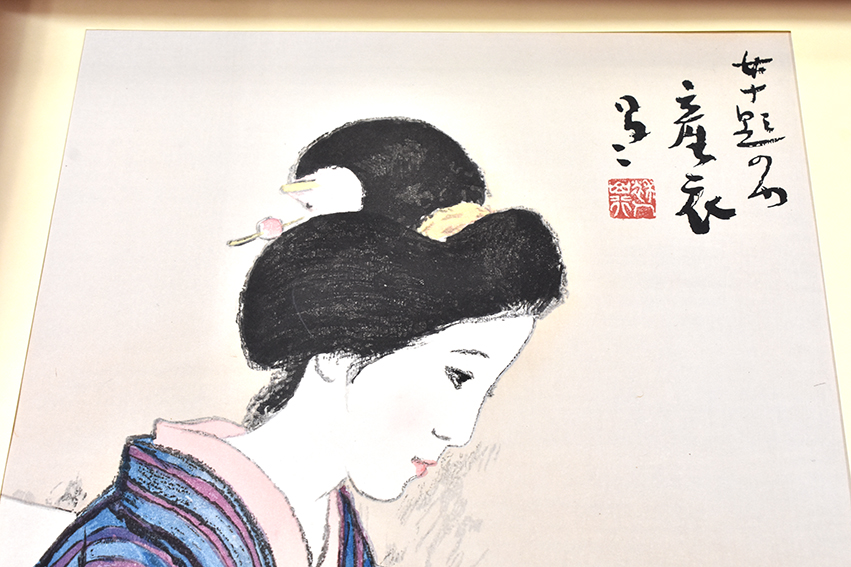 女十題の内
産衣
夢二